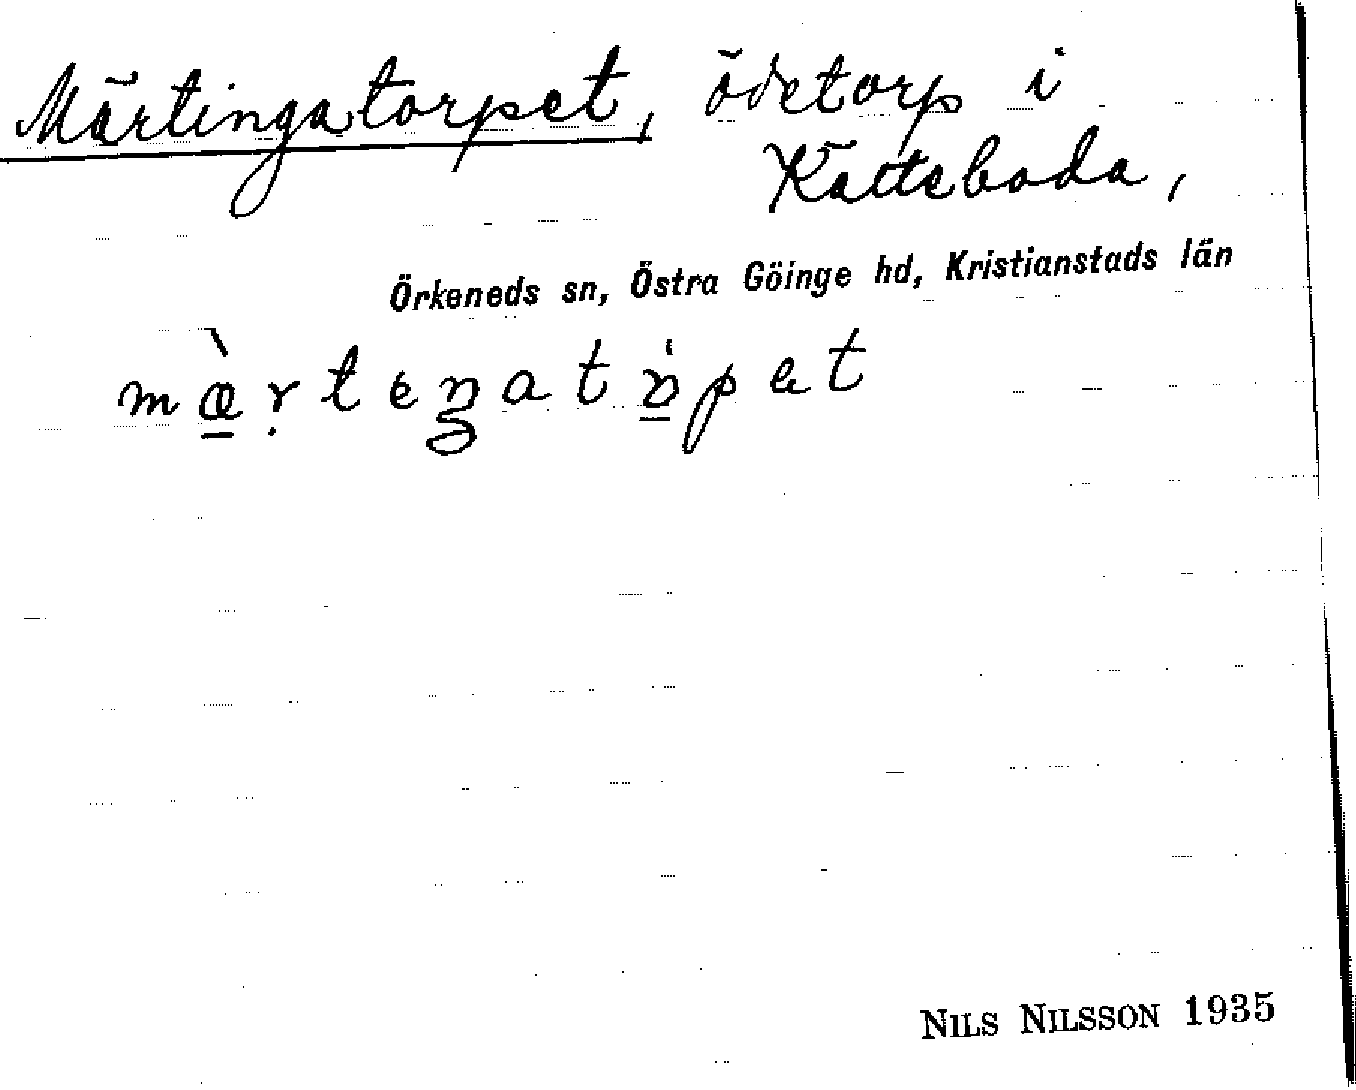 Märtingatorpet, ödetorp i
Kätteboda,
Örkeneds sn, Östra Göinge hd, Kristianstads län
NILS NILSSON 1935